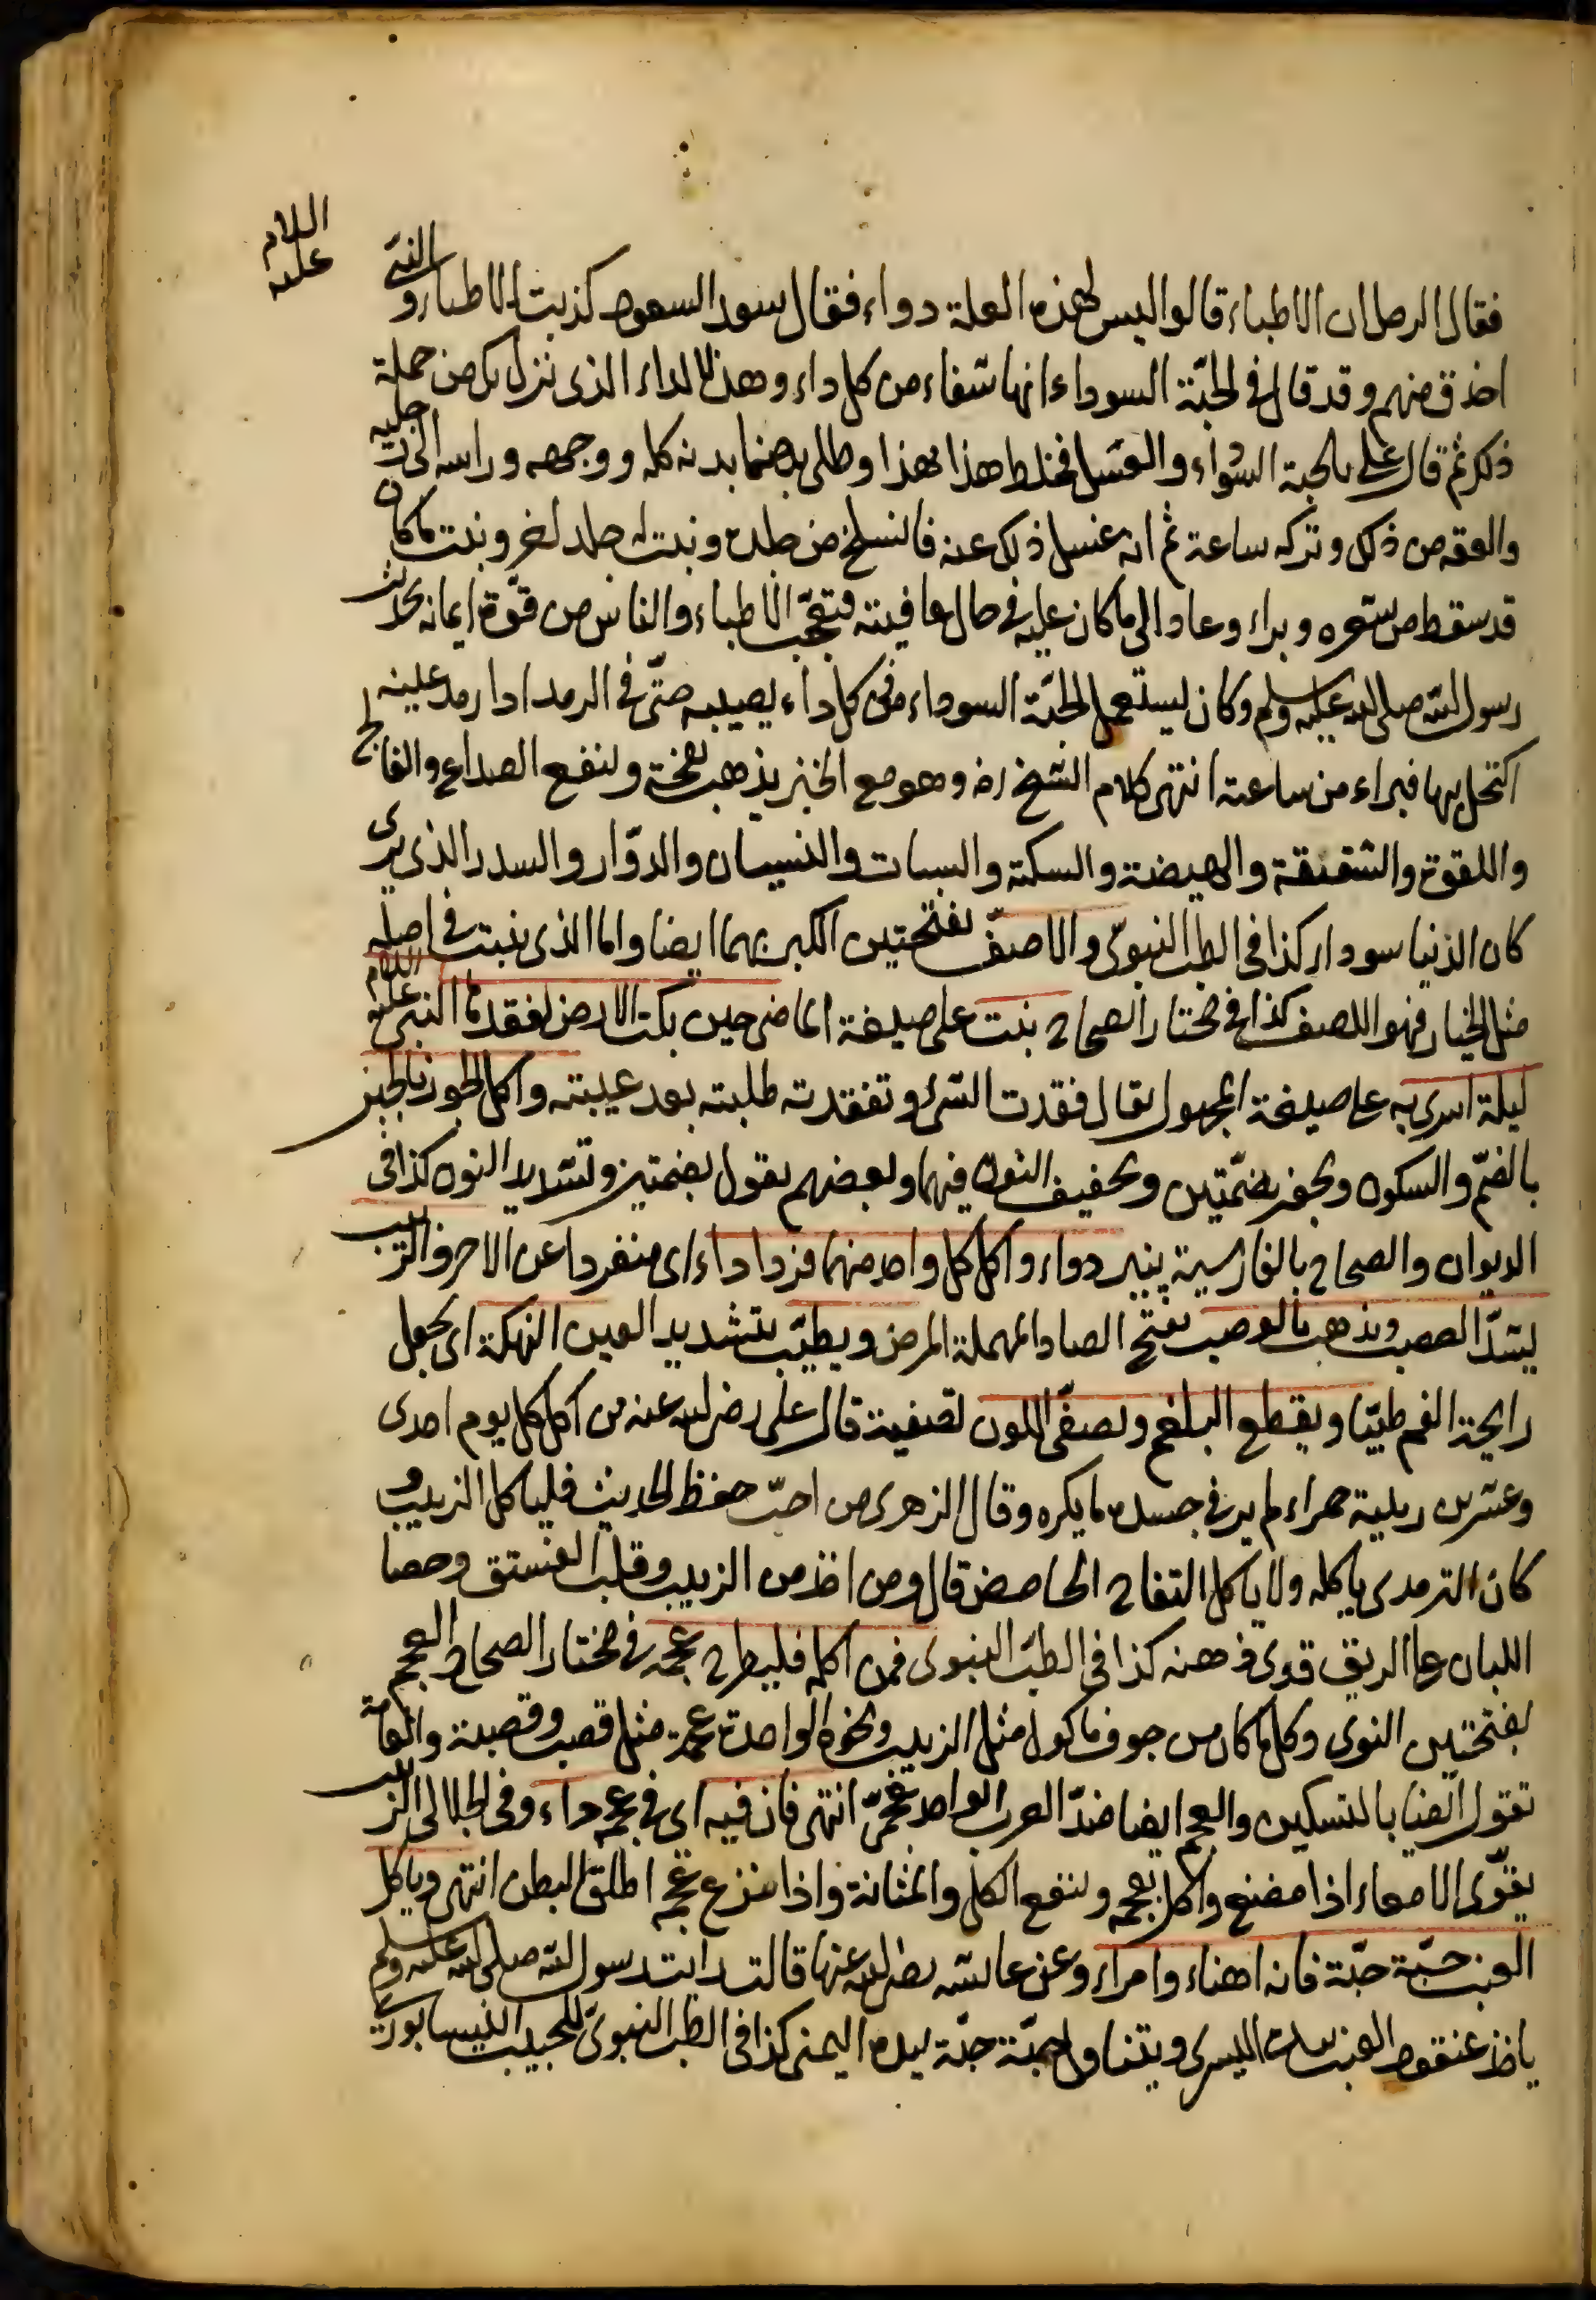 اللام
عليه
فقال الرجل ان الاطباء قالوا ليس لهذه العلة دواء فقال سعد السعود كذبت الاطباء والنبي
احذق منهم وقد قال في الحبّة السوداء انها شفاء من كل داء وهذا الداء الذى نزل بك من جملة
ذلك ثم قال على بالحبة السوداء والعسل فخلط هذا بهذا وطلى بهما بدنه كله ووجهه وراسه الى رجليه
والعقه من ذلك وتركه ساعة ثم انه غسل ذلك عنه فانسلخ من جلده ونبت له جلد اخر ونبت ما كان
قد سقط من شعره وبراء وعاد الى ما كان عليه في حال عافيته فتعجّب الاطباء والناس من قوّة ايمانه بحديث
رسول الله صلى الله عليه وسلم وكان يستعمل الحبّة السوداء في كل داء يصيبه حتّى في الرمد اذا رمد عينه
اكتحل بها فيراء من ساعته انتهى كلام الشيخ رض وهو مع الخبز يذهب نفخة وينفع الصداع والفالج
واللقوة والشقيقة والهيضة والسكتة والسبات والنسيان والدوّار والسدر الذى يرى
كان الدنيا سودار كذا في الطب النبوىّ والاصف بفتحتين الكبر بهما ايضا واما الذى ينبت في اصله
مثل الخيار فهو اللصف كذا في مختار الصحاح بنت على صيغة الماضى حين بكت الارض لفقدها النبى عليه اللام
ليلة اسرى به على صيغة المجهول يقال فقدت الشئ وتفقدته طلبته بعد غيبته واكل الجوز بالجبن
بالضمّ والسكون وبجبن بضمّتين وتخفيف النون فيهما وبعضهم يقول بضمتين وتشديد النون كذا في
الديوان والصحاح بالفارسية پنير دواء واكل كل واحد منهما فردا داء اى منفردا عن الاخر والزبيب
يشدّ العصب ويذهب بالوصب بفتح الصاد المهملة المرض ويطيّب بتشديد العين النهكة اى يجعل
رايحة الفم طيّبا ويقطع البلغم ويصفّى اللون تصفية قال على رضى الله عنه من اكل كل يوم احدى
وعشرين زبيبة حمراء لم ير في جسده ما يكره وقال الزهرى من احبّ حفظ الحديث فلياكل الزبيب و
كان الترمدى ياكله ولا ياكل التفاح الحامض قال ومن اخذ من الزبيب وقلب الفستق وحصا
اللبان على الريق قوى ذهنه كذا في الطبّ النبوى فمن اكله فليطرح عجمه في مختار الصحاح العجم
بفتحتين النوى وكل ما كان من جوف ماكول مثل الزبيب ونحوه الواحدة عجمة مثل قصب وقصبة والعامة
تقول ايضا بالتسكين والعجم ايضا ضدّ العرب الواحد عجمىّ انتهى فان فيه اى في عجمه داء وفي الجلالى الزبيب
يقوّى الامعاء اذا مضغ واكل بعجمه وينفع الكلى والمثانة واذا نزع عجمه اطلق البطن انتهى وياكل
العنب حبّة حبّة فانه اهناء وامراء وعن عايشه رضى الله عنها قالت رايت رسول الله صلى الله عليه وسلم
ياخذ عنقود العنب بيده اليسرى ويتناول حبّة حبّة بيده اليمنى كذا في الطب النبوىّ للحبيب النيسابورى